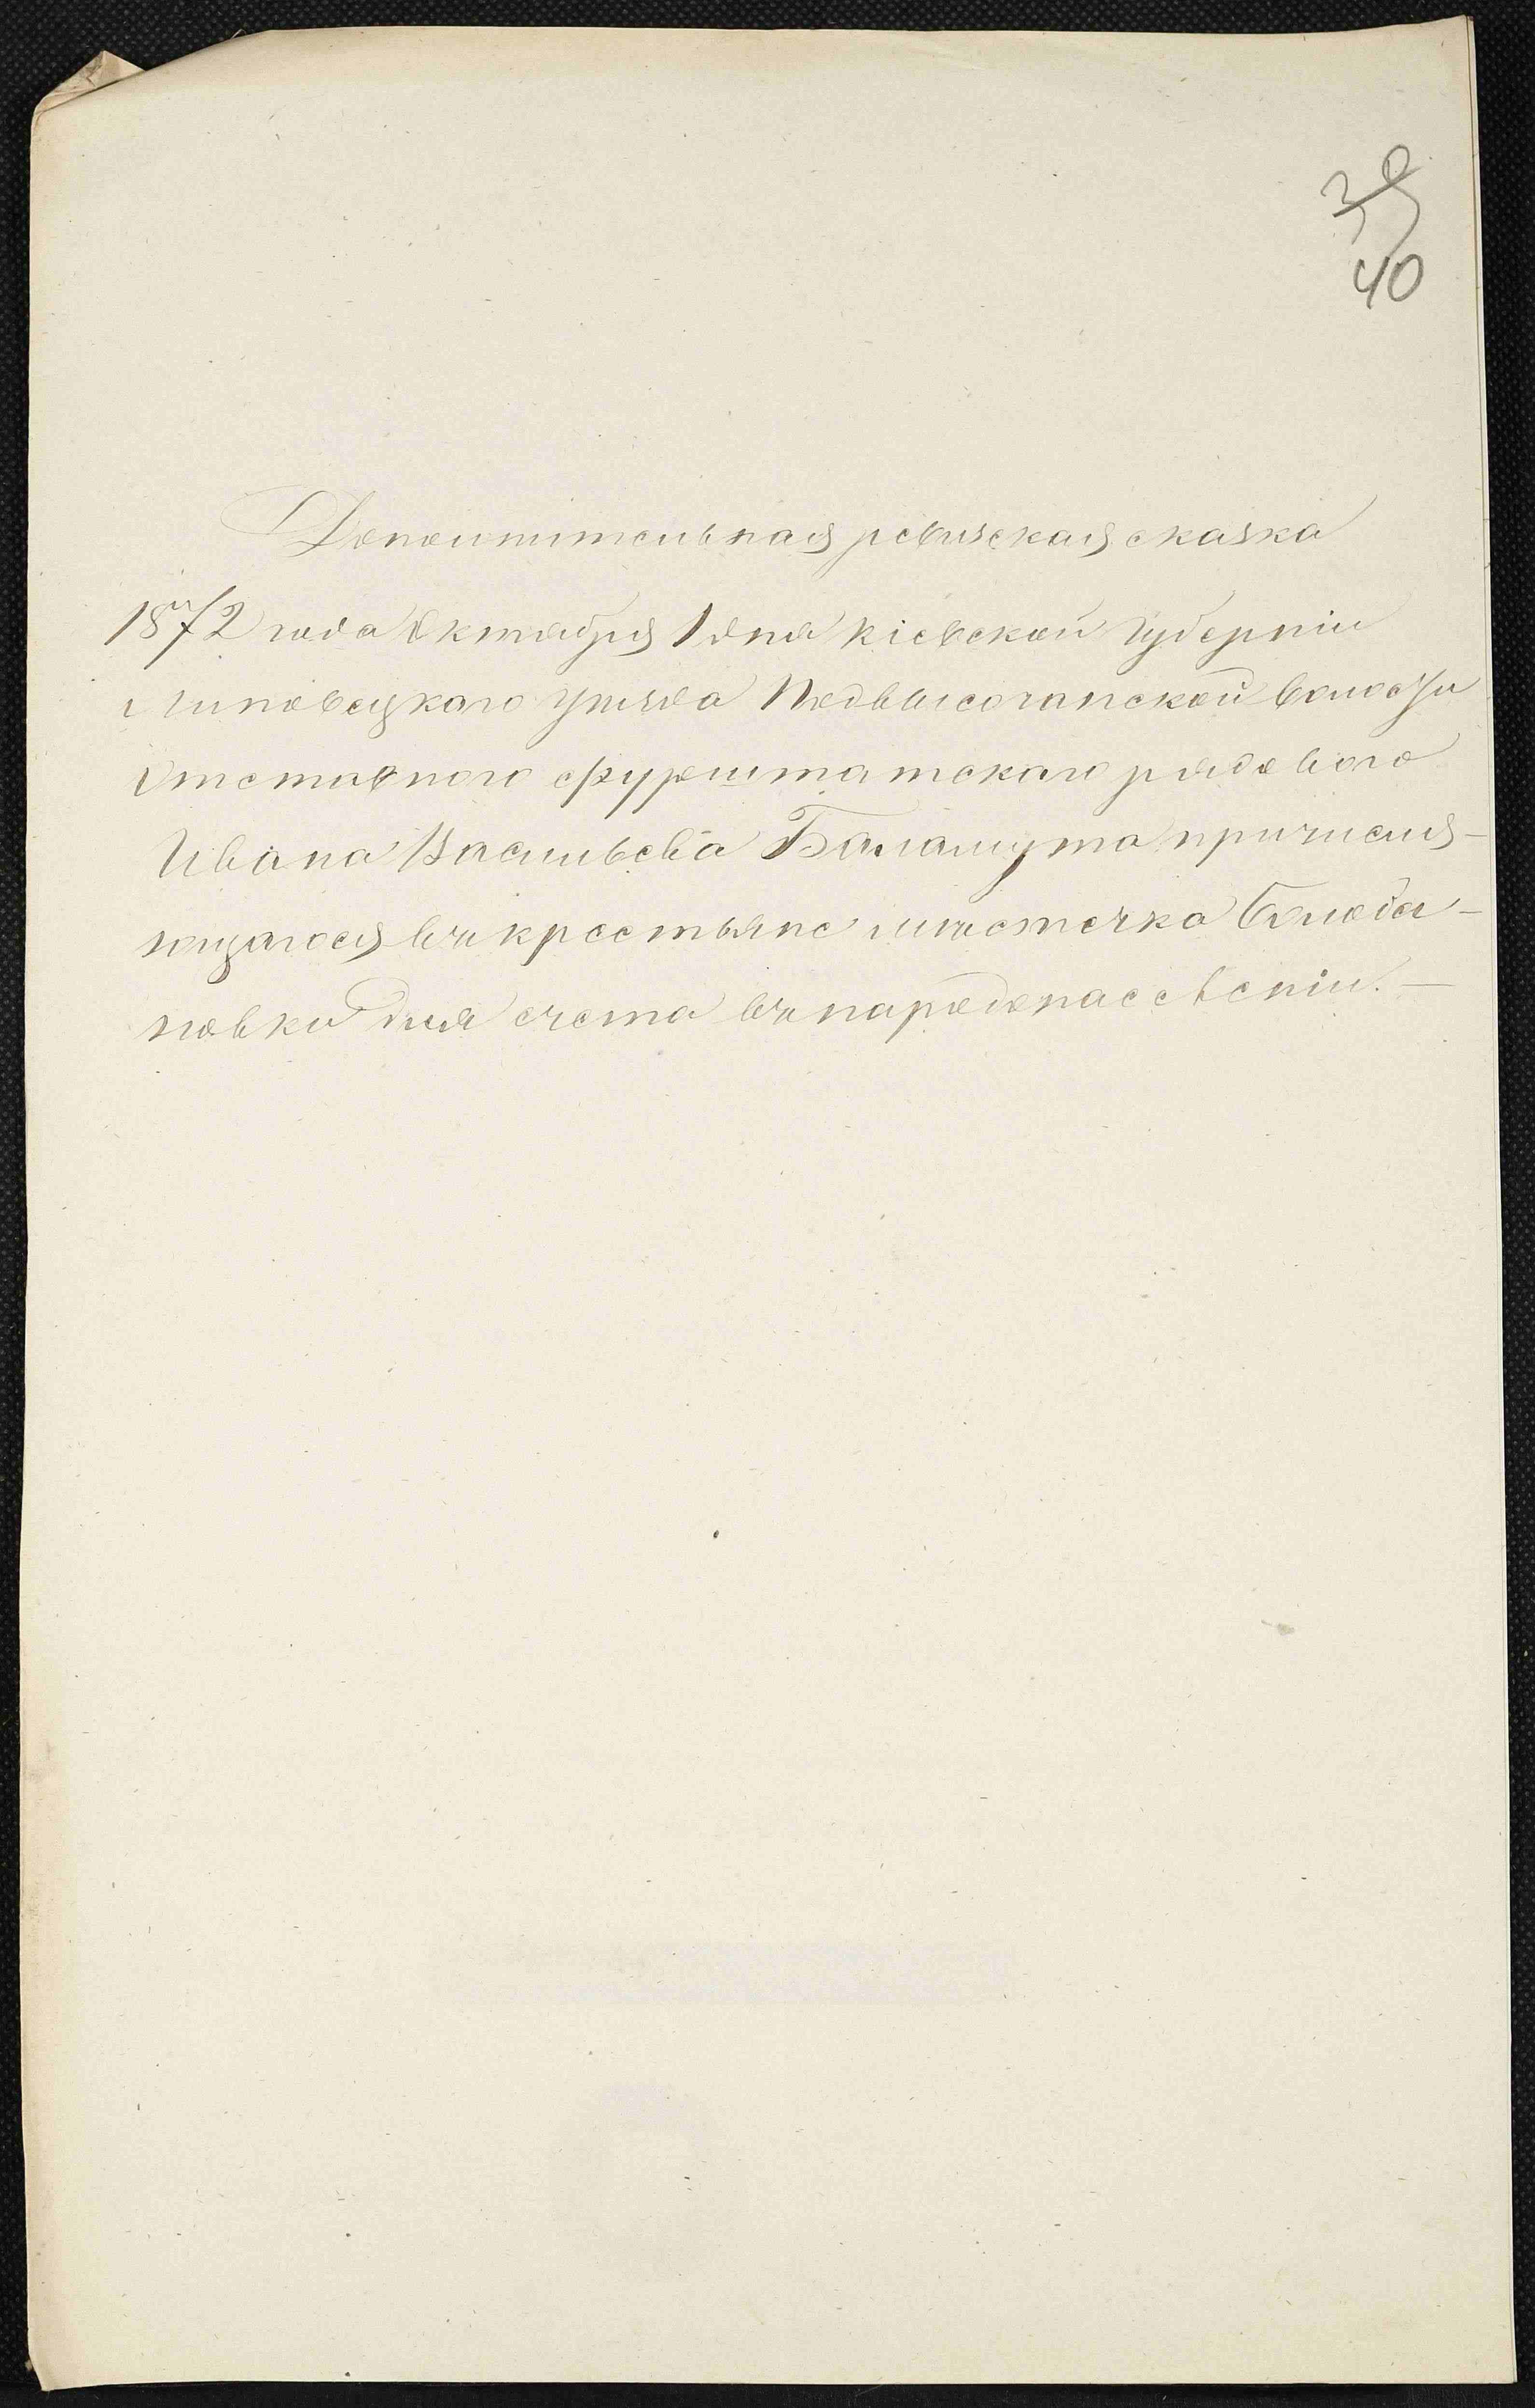 39
40
Дополнительная ревизская сказка
1872 года Октября 1 дня Кіевской Губерніи
Липовецкаго уѣзда Подвысочанской волости
Отставного фурштатскаго рядового
Ивана Васильева Баламута причисля-
ющагося въ крестьяне мѣстечка
новки для счета въ народонаселеніи. —